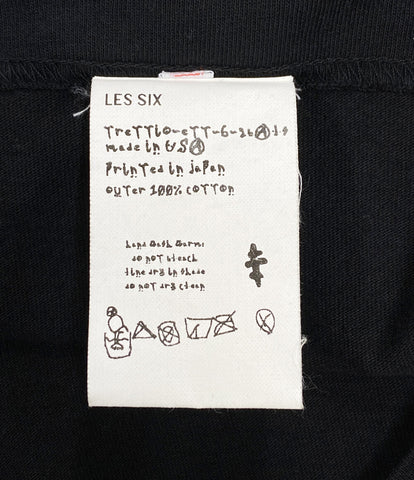 LES SIX
made in USA
Printed in japan
outer 100% cotton
hand wash warm
do not bleach
line dry in shade
do not dry clean